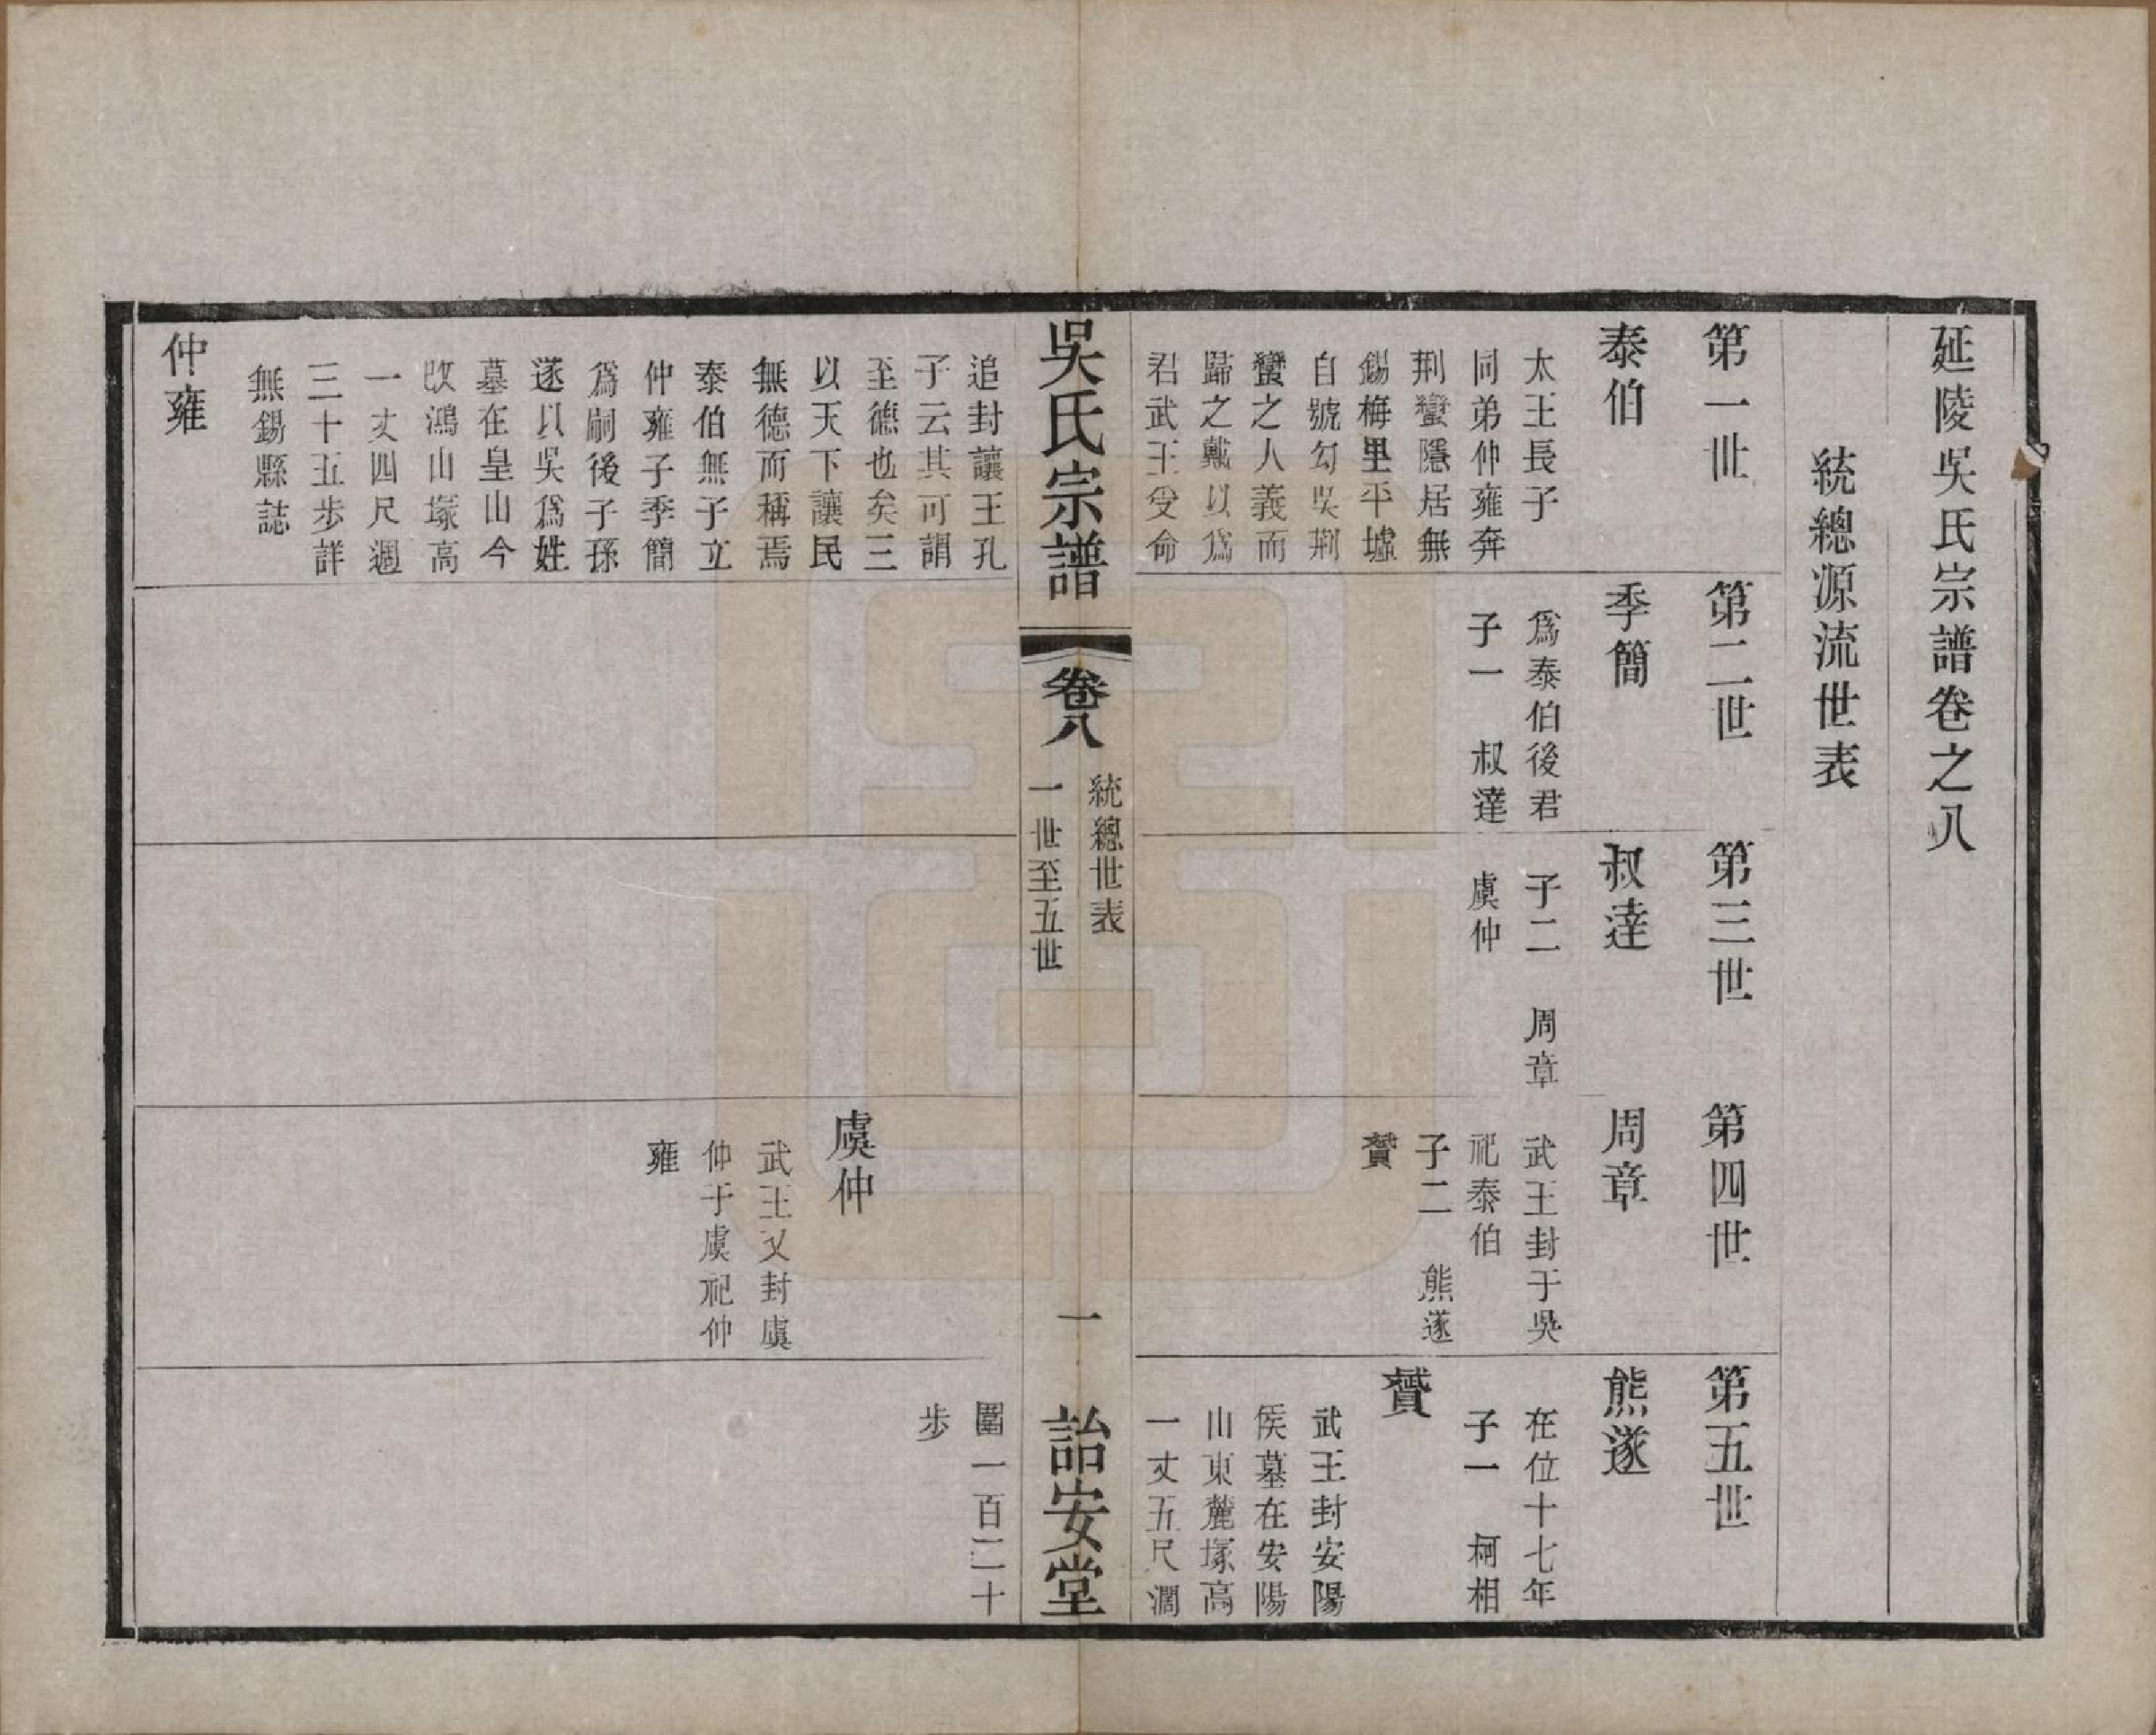 延陵吳氏宗譜卷之八
統總源流世表
第一世
泰伯
太王長子
同弟仲雍奔
荆蠻隱居無
錫梅里平墟
自號勾吳荆
蠻之人義而
歸之戴以爲
君武王受命
追封讓王孔
子云其可謂
至德也矣三
以天下讓民
無德而稱焉
泰伯無子立
仲雍子季簡
爲嗣後子孫
遂以吳爲姓
墓在皇山今
改鴻山塚高
一丈四尺週
三十五步詳
無錫縣誌
仲雍
第二世
季簡
爲泰伯後君
子一　叔達
第三世
叔達
子二　周章
虞仲
第四世
周章
武王封于吳
祀泰伯
子二　熊遂
贊
虞仲
武王又封虞
仲于虞祀仲
雍
第五世
熊遂
在位十七年
子一　柯相
贊
武王封安陽
侯墓在安陽
山東麓塚高
一丈五尺濶
圍一百二十
步
吳氏宗譜
卷八
統總世表
一世至五世
一
詒安堂